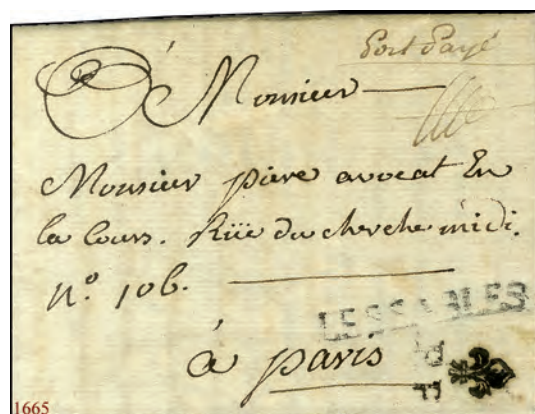 Port Payé
À Monsieur
Monsieur piere avocat En
la Cour. Rüe du cherche midi.
n.º 106.
LES SABLES
à paris
P.P.
1665